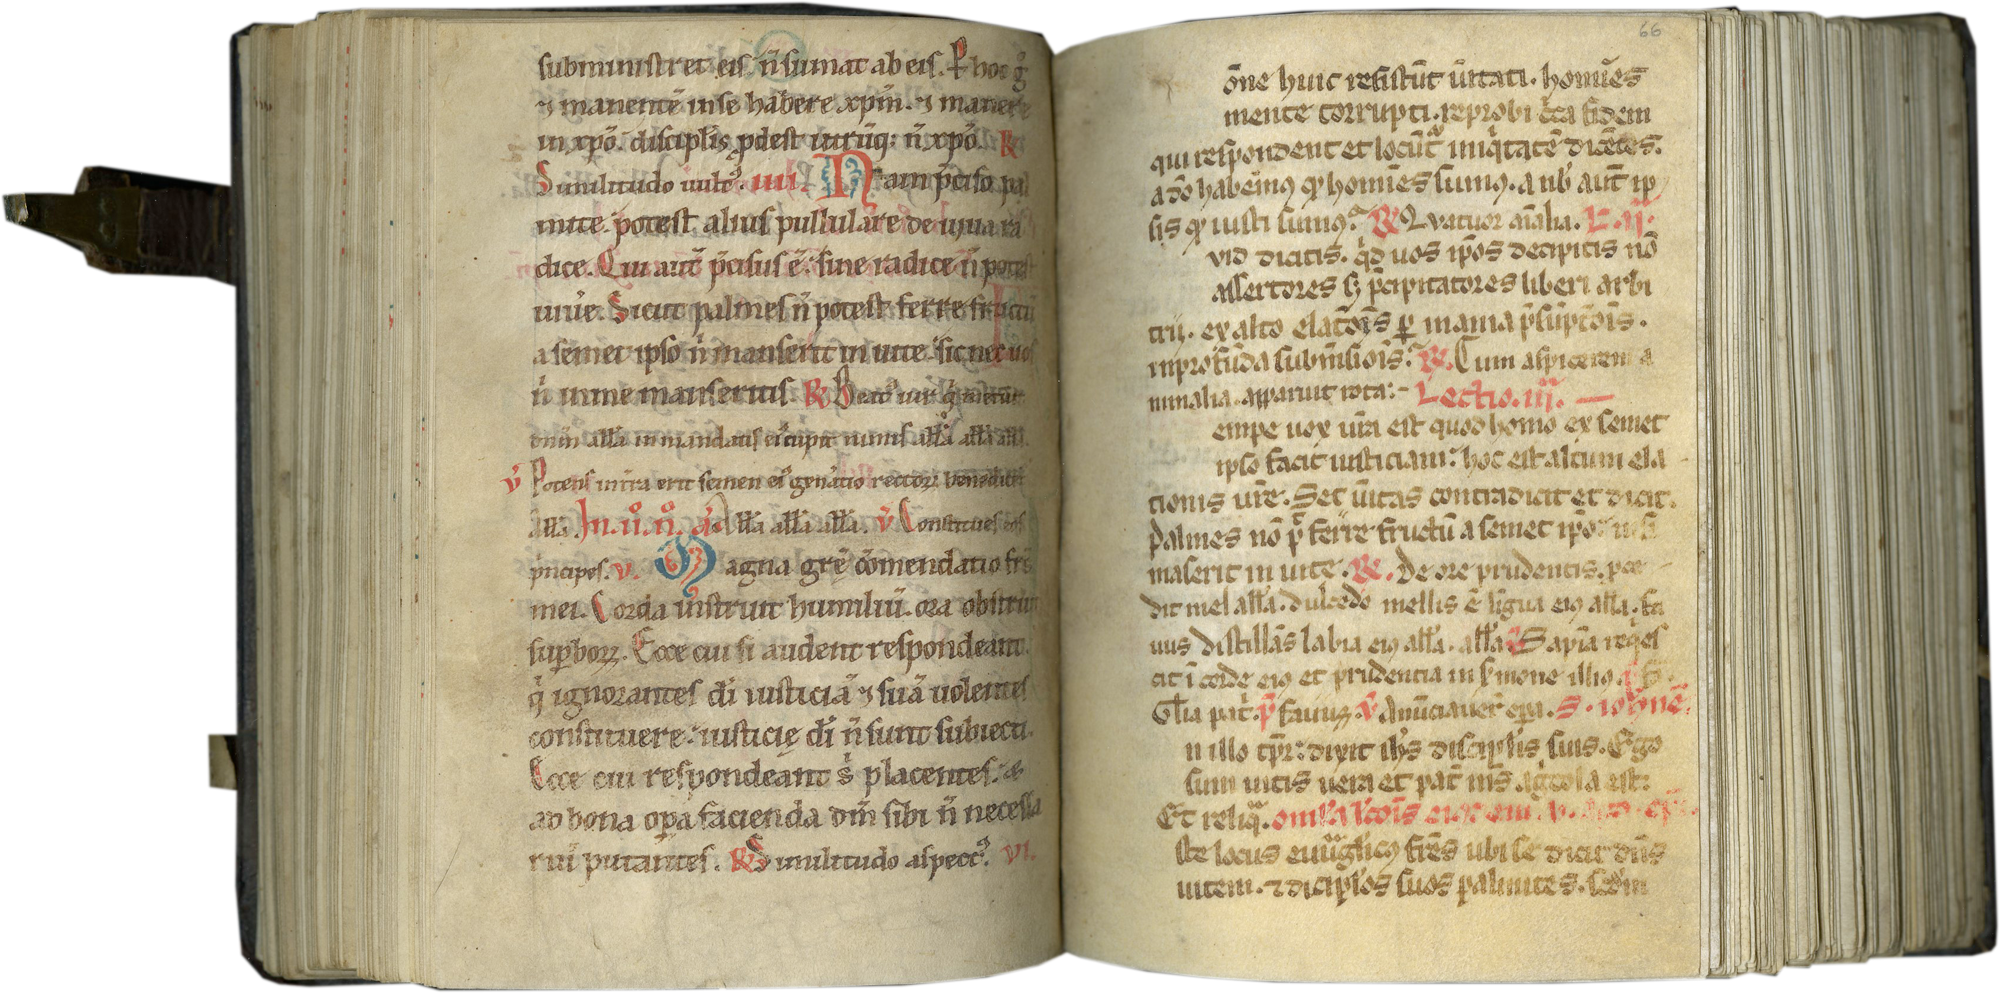 subministret eis n̄ sumat ab eis. P̲ hoc g̊
⁊ manentē in se habere xp̄m. ⁊ manere
in xp̄o. discipl̄is ꝓdest utrūq; n̄ xp̄o. R̸
Similitudo uult᾿. iiii. Nam p̄ciso pal
mite. potest alius pullulare de uiua ra
dice. Qui aut̄ p̄cisus ē. sine radice n̄ potest
uiu̾e. Sicut palmes n̄ potest ferre fructū
a semet ipso n̄ manserit in uite. sic nec uos
n̄ in me manseritis. R̸ Beat᾿ uir q̇ metuit
dn̄m all̄a in mandatis ei᾿ cupit nimis all̄a all̄a all̄a.
v̾ Potens in t̄ra erit semen ei᾿ gen̾atio rectoꝝ benedicet᾿
all̄a. In .ii. n̊. a᷒ All̄a all̄a all̄a. v̾ Constitues eos
p̾ncipes. v. Magna gr̄e cōmendatio fr̄s
mei. Corda instruit humiliū. ora obstruit
supꝑboꝝ. Ecce cui si audent respondeant
q̇ ignorantes dī iusticiā ⁊ suā uolentes
constituere. iusticię dī n̄ sunt subiecti.
Ecce cui respondeant s᷒ placentes. &
ad bona oꝑa facienda dm̄ sibi n̄ necessa
rium putantes. R̸ Similitudo aspect᾿. vi.
66
ōne huic resistūt ūitati. homīes
mente corrupti. reprobi cͥca fidem
qui respondent et locūt᷑ iniq̇tatē dicētes.
a dō habem᾿ qͩ homīes sum᾿. a nob̄ aut̄ ip
sis qͩ iusti sum᾿. R̸ Quatuor aīalia. L. ii.
vid dicitis. qͥd uos ip̄os decipitis nō
assertores sꝫ p̄cipitatores liberi arbi
trii. ex alto elatōis ꝑ inania p̄sūptōis.
in profūda submsiōis. R̸. Cum aspicerem a
nimalia. apparuit rota. Lectio .iii.
empe uox ūra est quod homo ex semet
ipso facit iusticiam. hoc est altum ela
tionis ūre. Set ūitas contradicit et dicit.
Palmes nō p̄t ferre fructū a semet ip̄o. nisi
māserit in uite. R̸. De ore prudentis. ꝓce
dit mel all̄a. dulcedo mellis ē līgua ei᾿ all̄a. fa
uus distillās labia ei᾿ all̄a. all̄a. v̾ Sapīa reqͥes
cit ī corde ei᾿ et prudentia in s̾mone illi᾿
Gl̄ia pat᷑. p̄ fauus. v̾ Anūciauer̄ oꝑa. S. iohannē.
n illo tp̄r. dixit ih̄s discipl̄is suis. Ego
sum uitis uera et pat᷑ m̄s agͥcola est.
Et reliq̄.
ste locus euūglic᾿ fr̄es ubi se dicit dn̄s
uitem. ⁊ dicip̄los suos palmites.